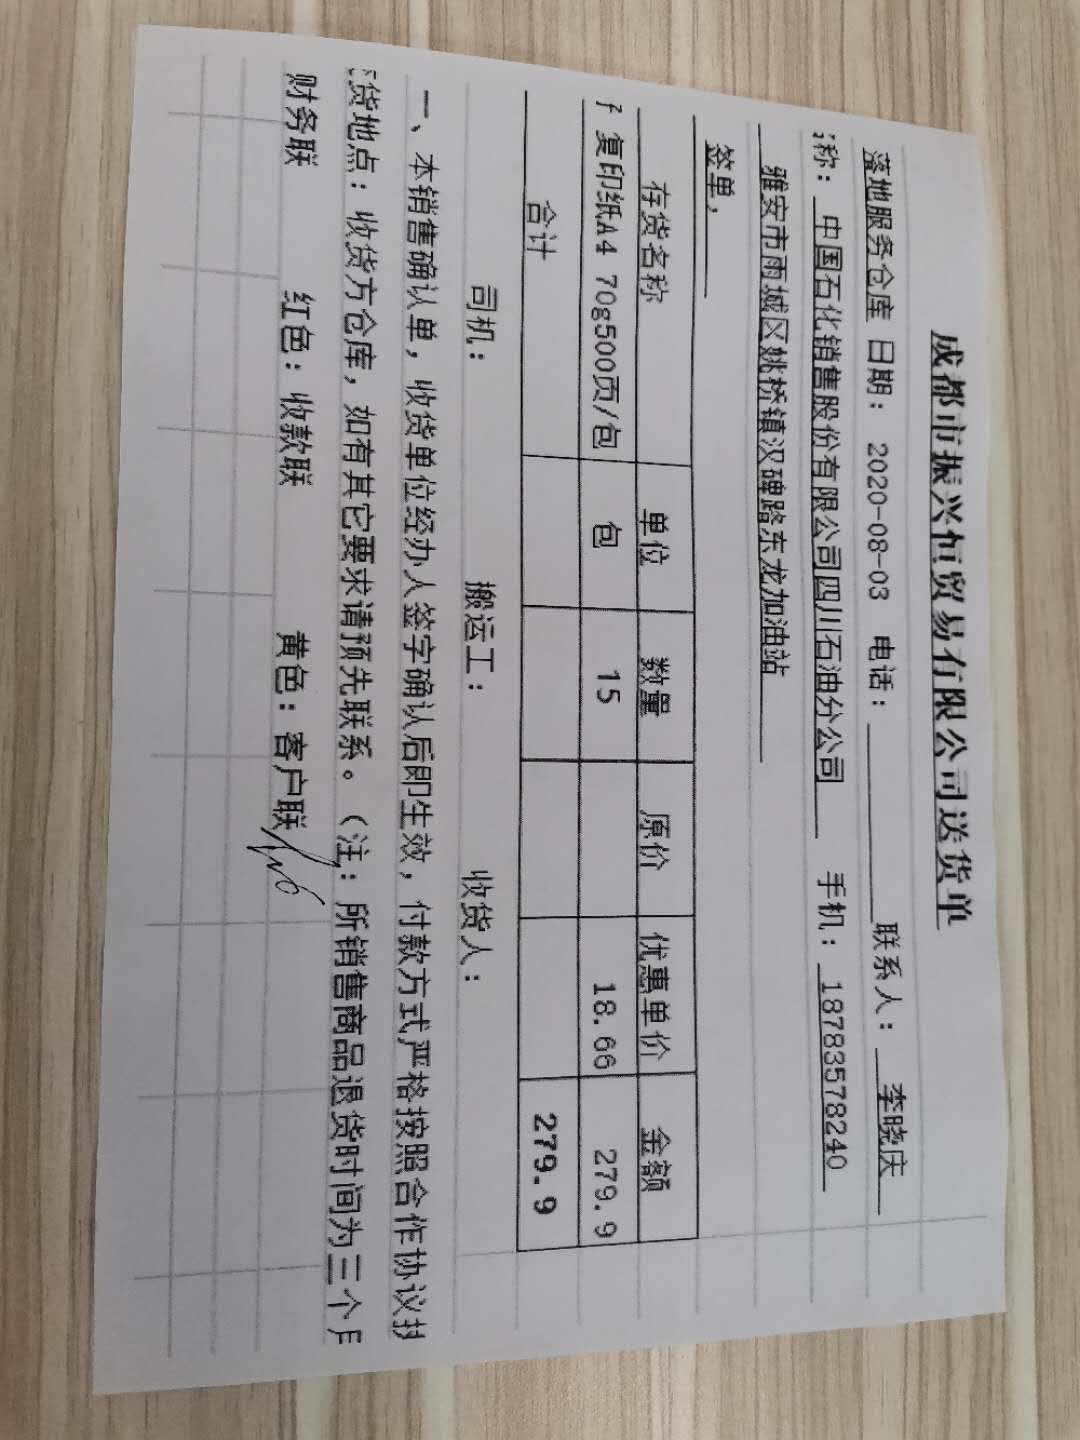 成都市振兴恒贸易有限公司送货单
落地服务仓库 日期: 2020-08-03 电话: 联系人: 李晓庆
称: 中国石化销售股份有限公司四川石油分公司 手机: 18783578240
雅安市雨城区姚桥镇汉碑路东龙加油站
签单,
存货名称 单位 数量 原价 优惠单价 金额
复印纸A4 70g500页/包 包 15 18.66 279.9
合计 279.9
司机: 搬运工: 收货人:
一、本销售确认单, 收货单位经办人签字确认后即生效, 付款方式严格按照合作协议
货地点: 收货方仓库, 如有其它要求请预先联系。(注: 所销售商品退货时间为三个
财务联 红色: 收款联 黄色: 客户联